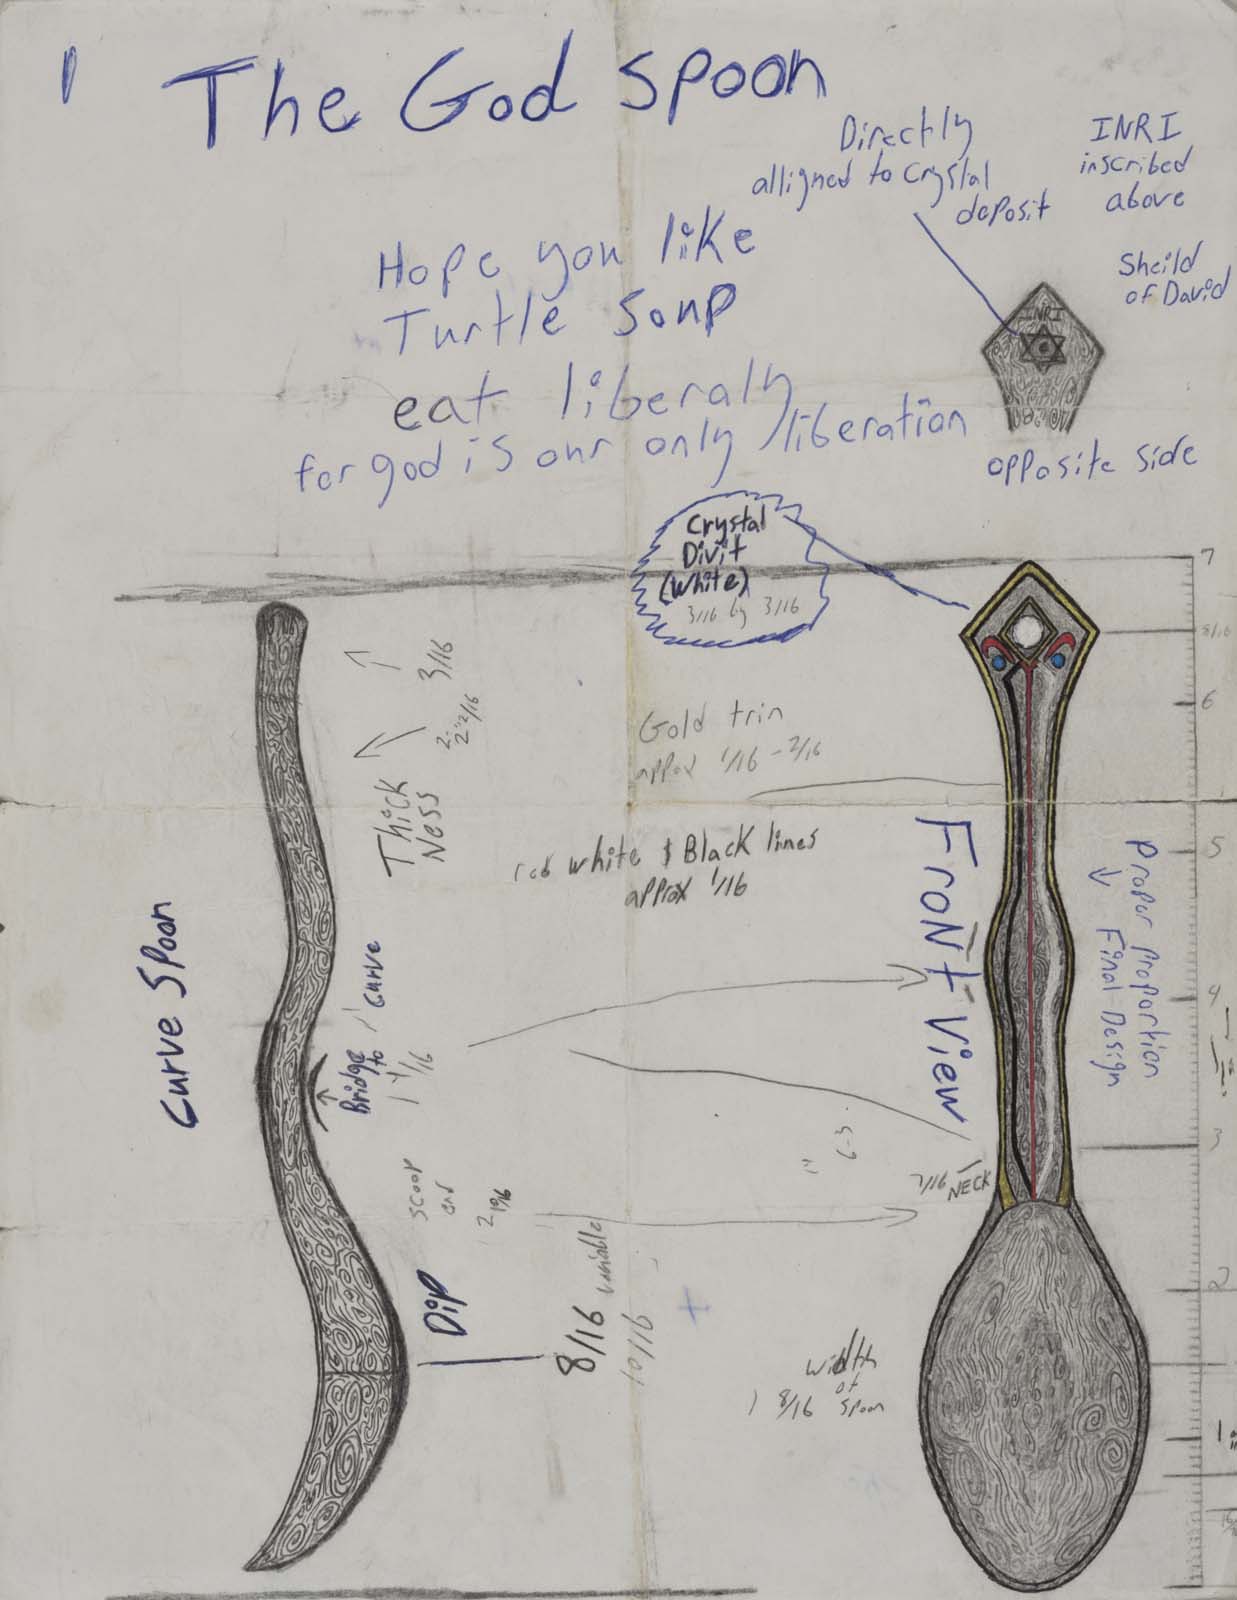 The God Spoon
Directly
alligned to Crystal
deposit
INRI
inscribed
above
Sheild
of David
Hope you like
Turtle Soup
eat liberaly
for god is our only liberation
INRI
opposite side
Crystal
Divit
(White)
3/16 by 3/16
7
8/16
6
5
4
3
2
1
3/16
Thick
Ness
Gold trin
appox 1/16 - 2/16
red white & Black lines
approx 1/16
Curve Spoon
Bridge
to
Curve
FRoNt View
Propor Proportion
Final Design
7/16 NECK
scoop
end
Dip
8/16 variable
10/16
width
of
spoon
1 8/16